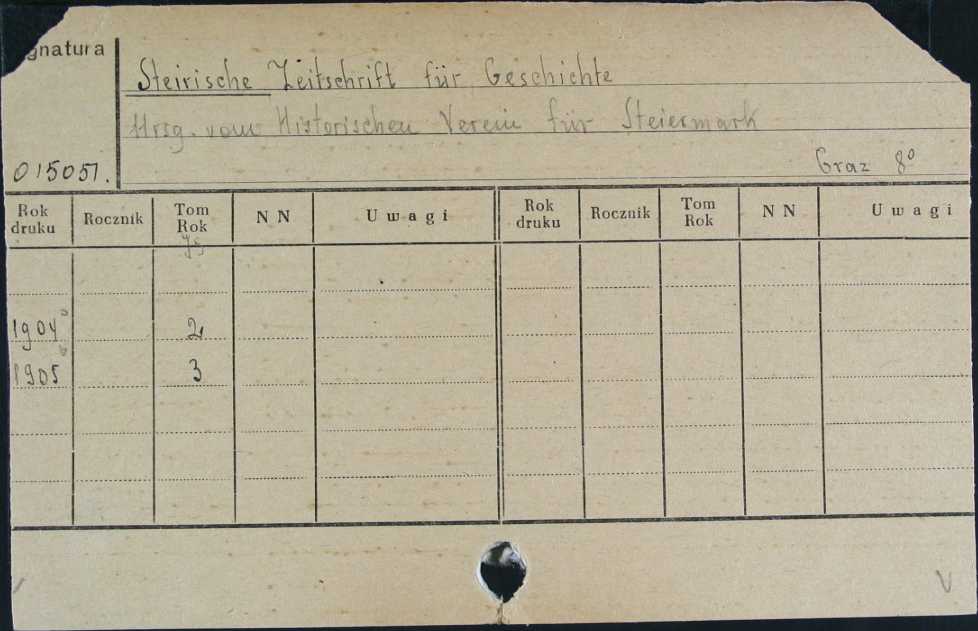 gnatura
Steirische Zeitschrift für Geschichte
Hrsg. vom Historischen Verein für Steiermark
015051.
Graz 8°
Rok druku Rocznik Tom Rok N N Uwagi Rok druku Rocznik Tom Rok N N Uwagi
Jg
1904 2
1905 3
V